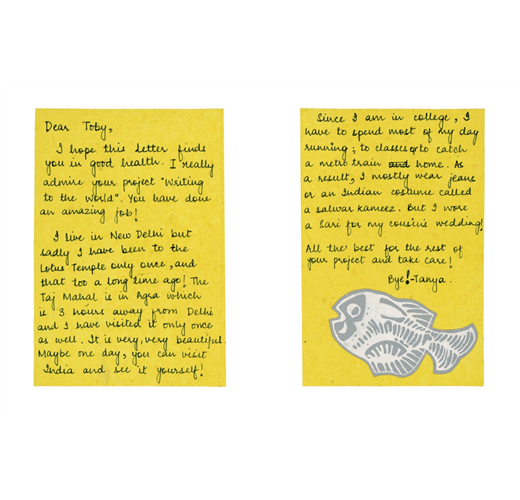 Dear Toby,
I hope this letter finds
you in good health. I really
admire your project "Writing
to the world". You have done
an amazing job!
I live in New Delhi but
sadly I have been to the
Lotus Temple only once, and
that too a long time ago! The
Taj Mahal is in Agra which
is 3 hours away from Delhi
and I have visited it only once
as well. It is very, very beautiful.
Maybe one day, you can visit
India and see it yourself!
Since I am in college, I
have to spend most of my day
running; to classes or to catch
a metro train and home. As
a result, I mostly wear jeans
or an Indian costume called
a salwar kameez. But I wore
a Sari for my cousin's wedding!
All the best for the rest of
your project and take care!
Bye!-Tanya.